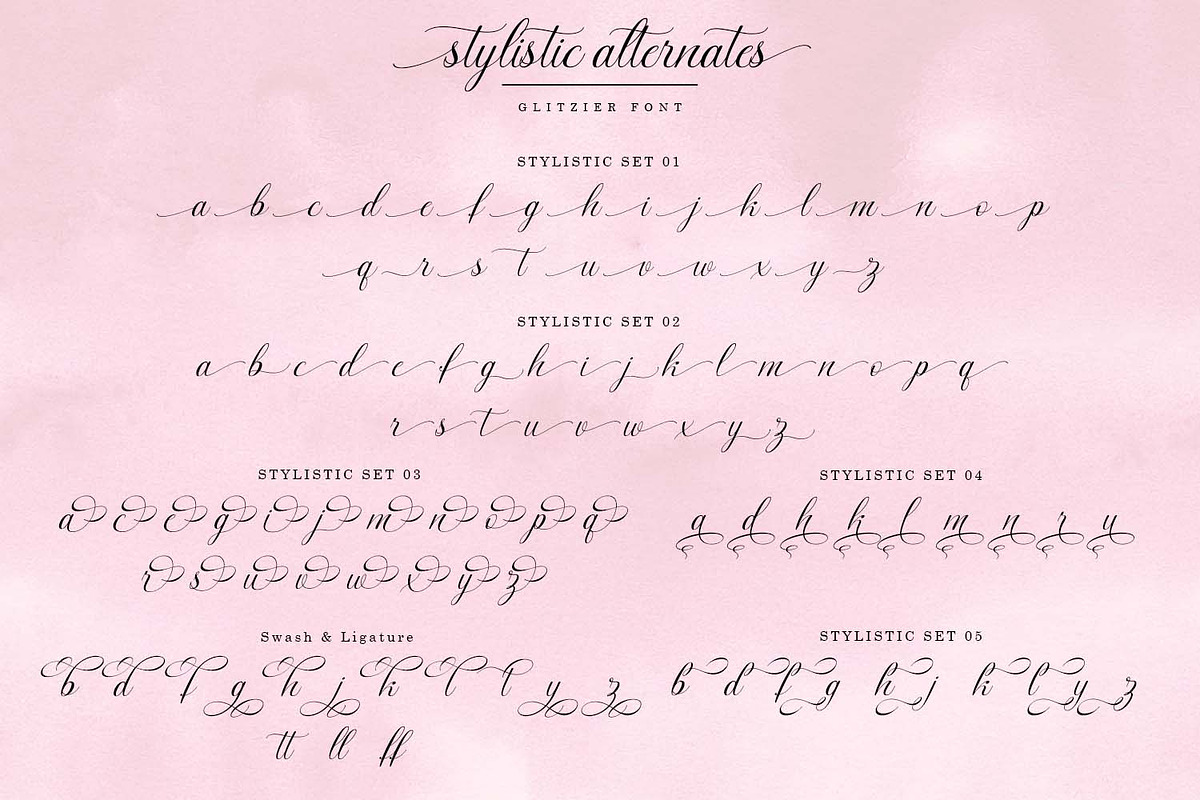 stylistic alternates
GLITZIER FONT
STYLISTIC SET 01
a b c d e f g h i j k l m n o p
q r s t u v w x y z
STYLISTIC SET 02
a b c d e f g h i j k l m n o p q
r s t u v w x y z
STYLISTIC SET 03
a c e g i j m n o p q
r s u v w x y z
STYLISTIC SET 04
a d h k l m n r u
Swash & Ligature
b d f g h j k l t y z
tt ll ff
STYLISTIC SET 05
b d f g h j k l y z